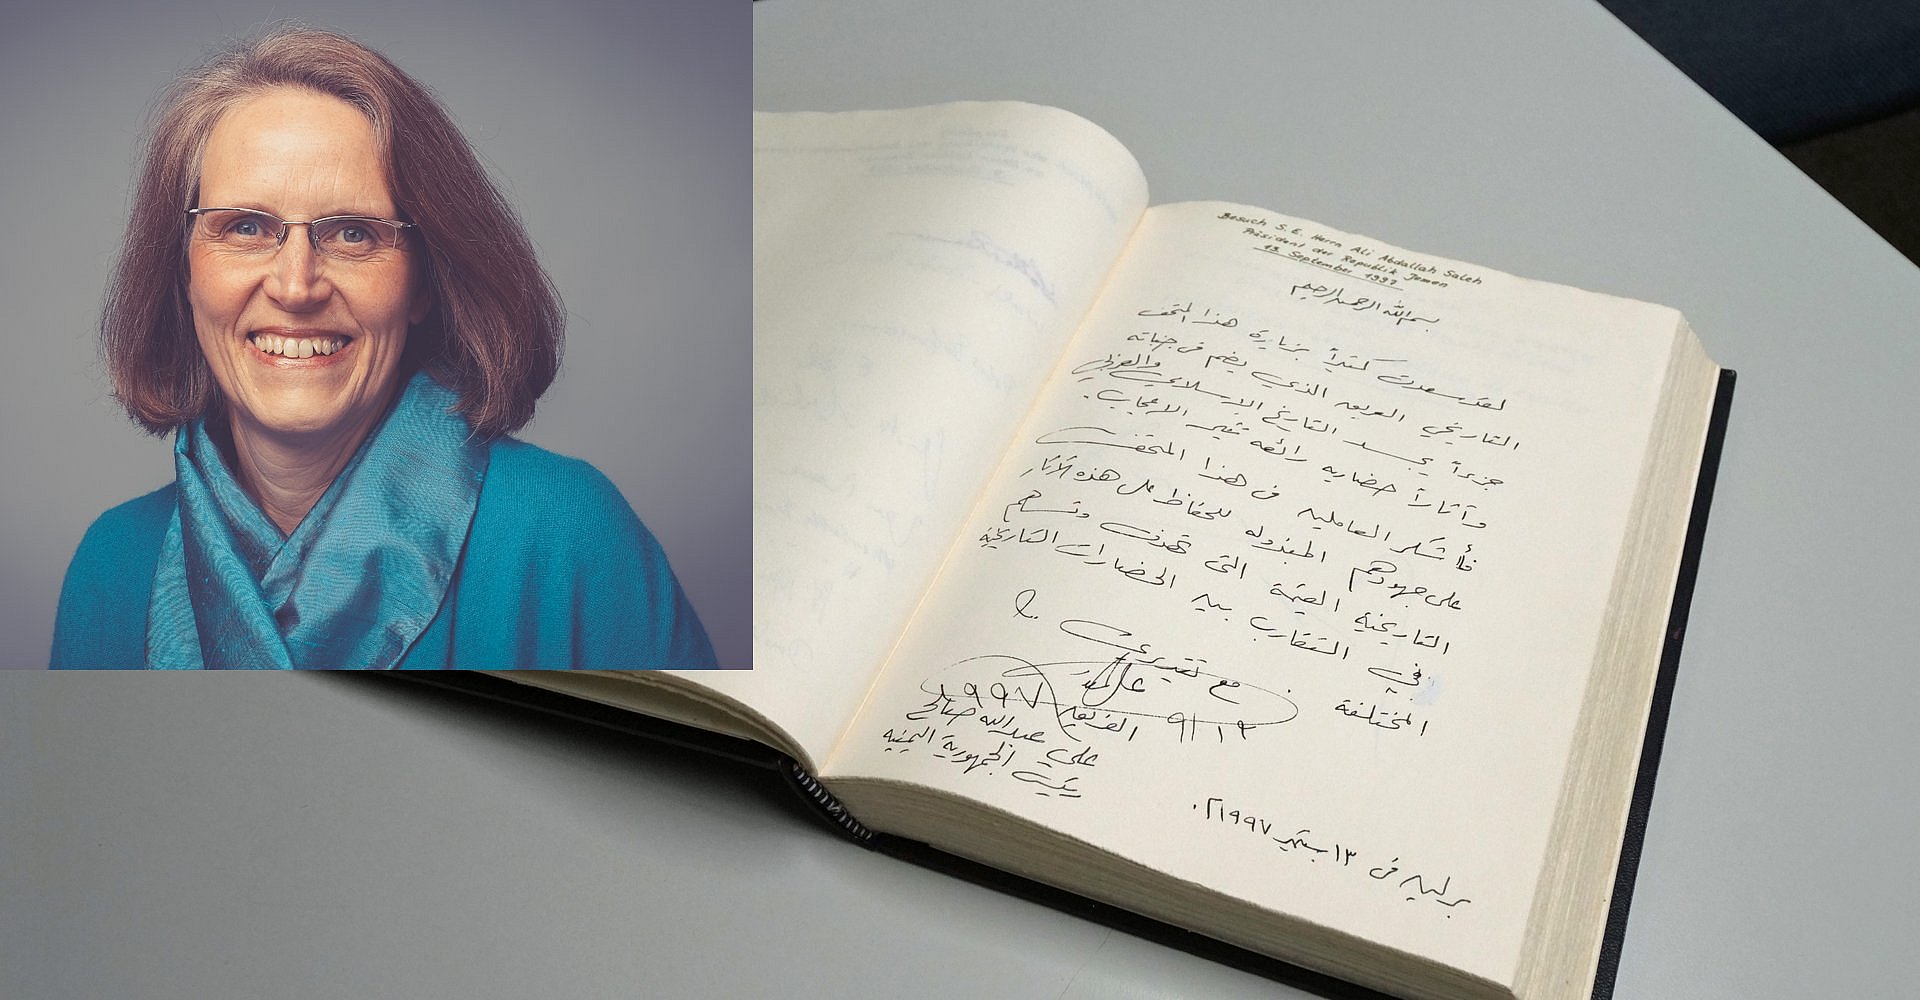 Besuch S.E. Herrn Ali Abdallah Saleh
Präsident der Republik Jemen
13. September 1997
بسم الله الرحمن الرحيم
لقد سعدت كثيراً بزيارة هذا المتحف
التاريخي العريق الذي يضم في جنباته
جزءاً يجسد التاريخ الإسلامي والعربي
وآثاراً حضاريه رائعه تثير الاعجاب.
فأشكر العاملين في هذا المتحف
على جهودهم المبذوله للحفاظ على هذه الآثار
التاريخية القيمة التي تهدف وتسهم
في التقارب بين الحضارات التاريخية
المختلفة.
مع تقديري
١٣/٩/١٩٩٧
الفريق
علي عبدالله صالح
رئيس الجمهورية اليمنيه
برلين في ١٣ سبتمبر ١٩٩٧م.